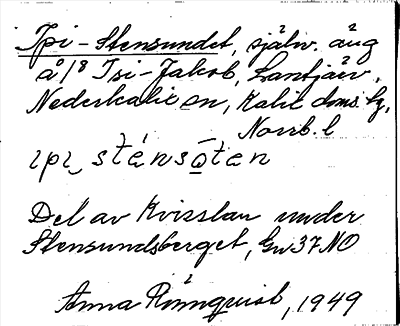 Ipi-Stensundet, självst. äng
å 1/8 Isi-Jakob, Lantjärv,
Nederkalix sn, Kalix doms. hg,
Norrb. l
ipi stensöten
Del av Kvisslan under
Stensundsberget, Gv 37 NO
Anna Rönnquist, 1949